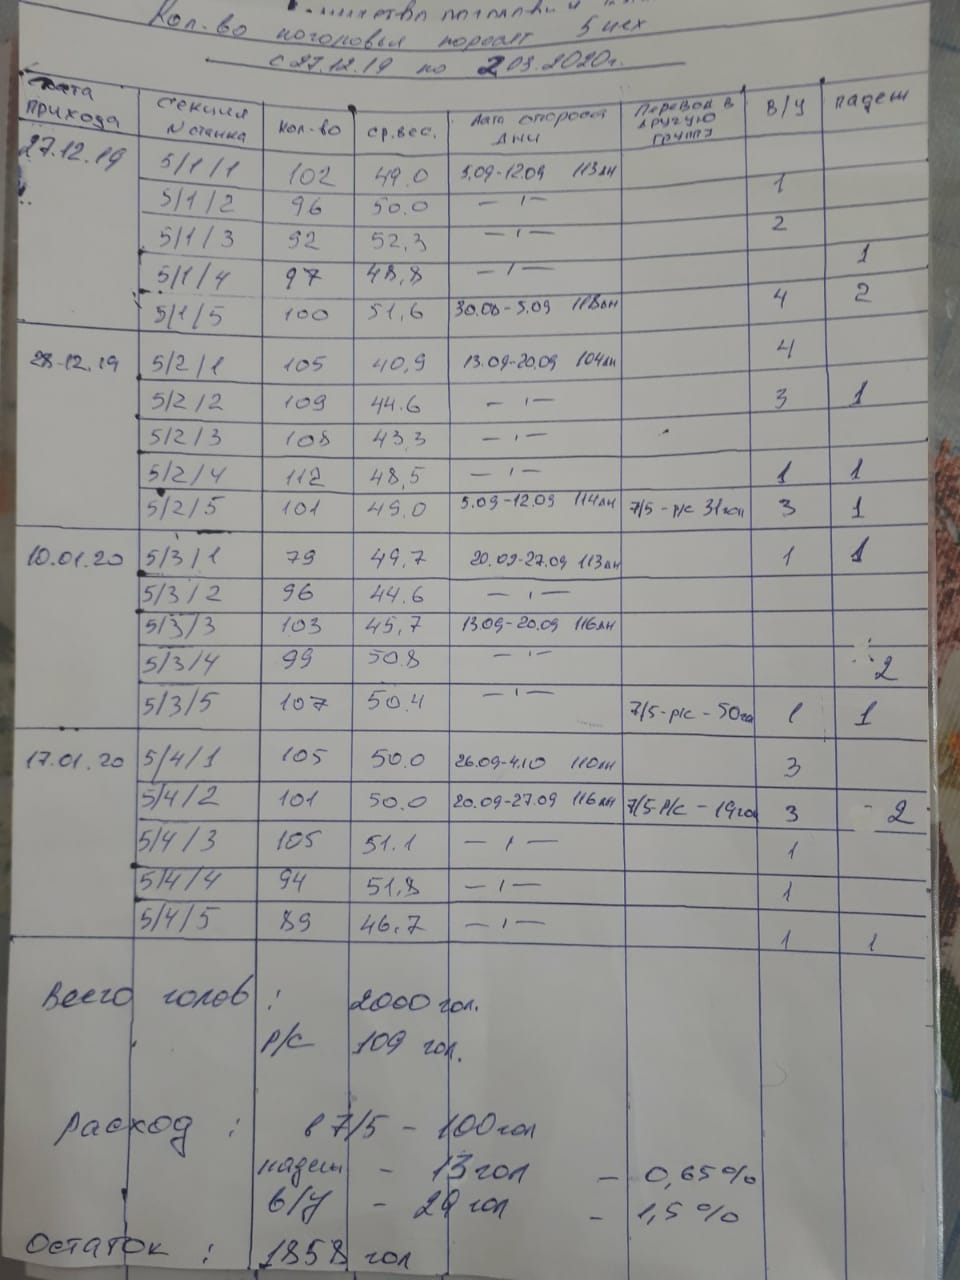 Кол-во поголовья поросят 5 цех
с 27.12.19 по 2.03.2020г.
Дата прихода Секция N станка Кол-во ср.вес. Дата опороса дни Перевод в другую группу В/у падеж
27.12.19 5/1/1 102 49.0 5.09-12.09 113дн 1
5/1/2 96 50.0 — ı —
5/1/3 92 52,3 — ı — 2
5/1/4 97 48,8 — ı — 1
5/1/5 100 51,6 30.08-5.09 118дн 4 2
28.12.19 5/2/1 105 40,9 13.09-20.09 104дн 4
5/2/2 109 44.6 — ı — 3 1
5/2/3 108 43,3 — ı —
5/2/4 112 48,5 — ı — 1 1
5/2/5 101 49,0 5.09-12.09 114дн 7/5 - р/с 31гол 3 1
10.01.20 5/3/1 79 49,7 20.09-27.09 113дн 1 1
5/3/2 96 44.6 — ı —
5/3/3 103 45,7 13.09-20.09 116дн
5/3/4 99 50.8 — ı — 2
5/3/5 107 50.4 — ı — 7/5-р/с - 50го 1 1
17.01.20 5/4/1 105 50.0 26.09-4.10 110дн 3
5/4/2 101 50.0 20.09-27.09 116дн 7/5-Р/с - 19гол 3 - 2
5/4/3 105 51.1 — ı — 1
5/4/4 94 51,8 — ı — 1
5/4/5 89 46.7 — ı — 1 1
Всего голов : 2000 гол.
Р/с 109 гол.
Расход : в 7/5 - 100гол
падеж - 13гол - 0,65%
в/у - 29 гол - 1,5%
Остаток : 1858 гол